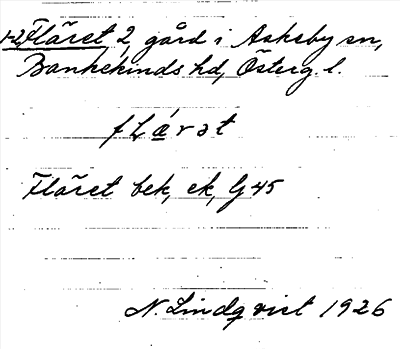 1-2 Flãret 2, gård i Askeby sn,
Bankekinds hd, Österg. l.
fLǽrət
Flãret bek, ek, G 45
N. Lindqvist 1926